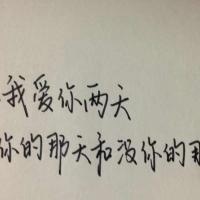 我爱你两天
你的那天和没你的那